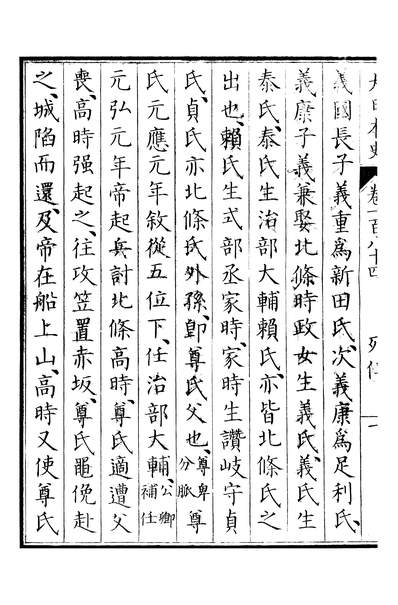 大日本史 卷一百八十四 列傳 一
義國長子義重爲新田氏、次義康爲足利氏、
義康子義兼娶北條時政女生義氏、義氏生
泰氏、泰氏生治部大輔賴氏、亦皆北條氏之
出也、賴氏生式部丞家時、家時生讚岐守貞
氏、貞氏亦北條氏外孫、卽尊氏父也、尊卑分脈尊
氏元應元年敘從五位下、任治部大輔、公卿補任
元弘元年帝起兵討北條高時、尊氏適遭父
喪、高時强起之、往攻笠置赤坂、尊氏黽俛赴
之、城陷而還、及帝在船上山、高時又使尊氏